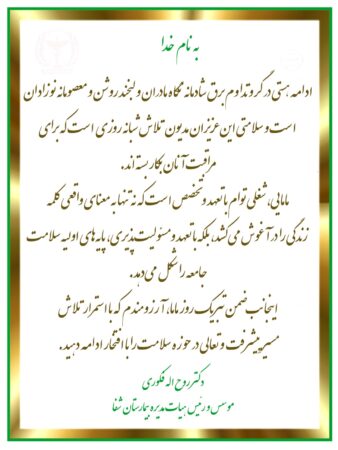 به نام خدا
ادامه هستی در گرو تداوم برق شادمانه نگاه مادران و لبخند روشن و معصومانه نوزادان
است و سلامتی این عزیزان مدیون تلاش شبانه روزی است که برای
مراقبت آنان بکار بسته اند.
مامایی، شغلی توام با تعهد و تخصص است که نه تنها به معنای واقعی کلمه
زندگی را در آغوش می کشد، بلکه با تعهد و مسئولیت پذیری، پایه های اولیه سلامت
جامعه را شکل می دهد.
اینجانب ضمن تبریک روز ماما، آرزومندم که با استمرار تلاش
مسیر پیشرفت و تعالی در حوزه سلامت را با افتخار ادامه دهید.
دکتر روح اله فکوری
موسس و رئیس هیات مدیره بیمارستان شفا